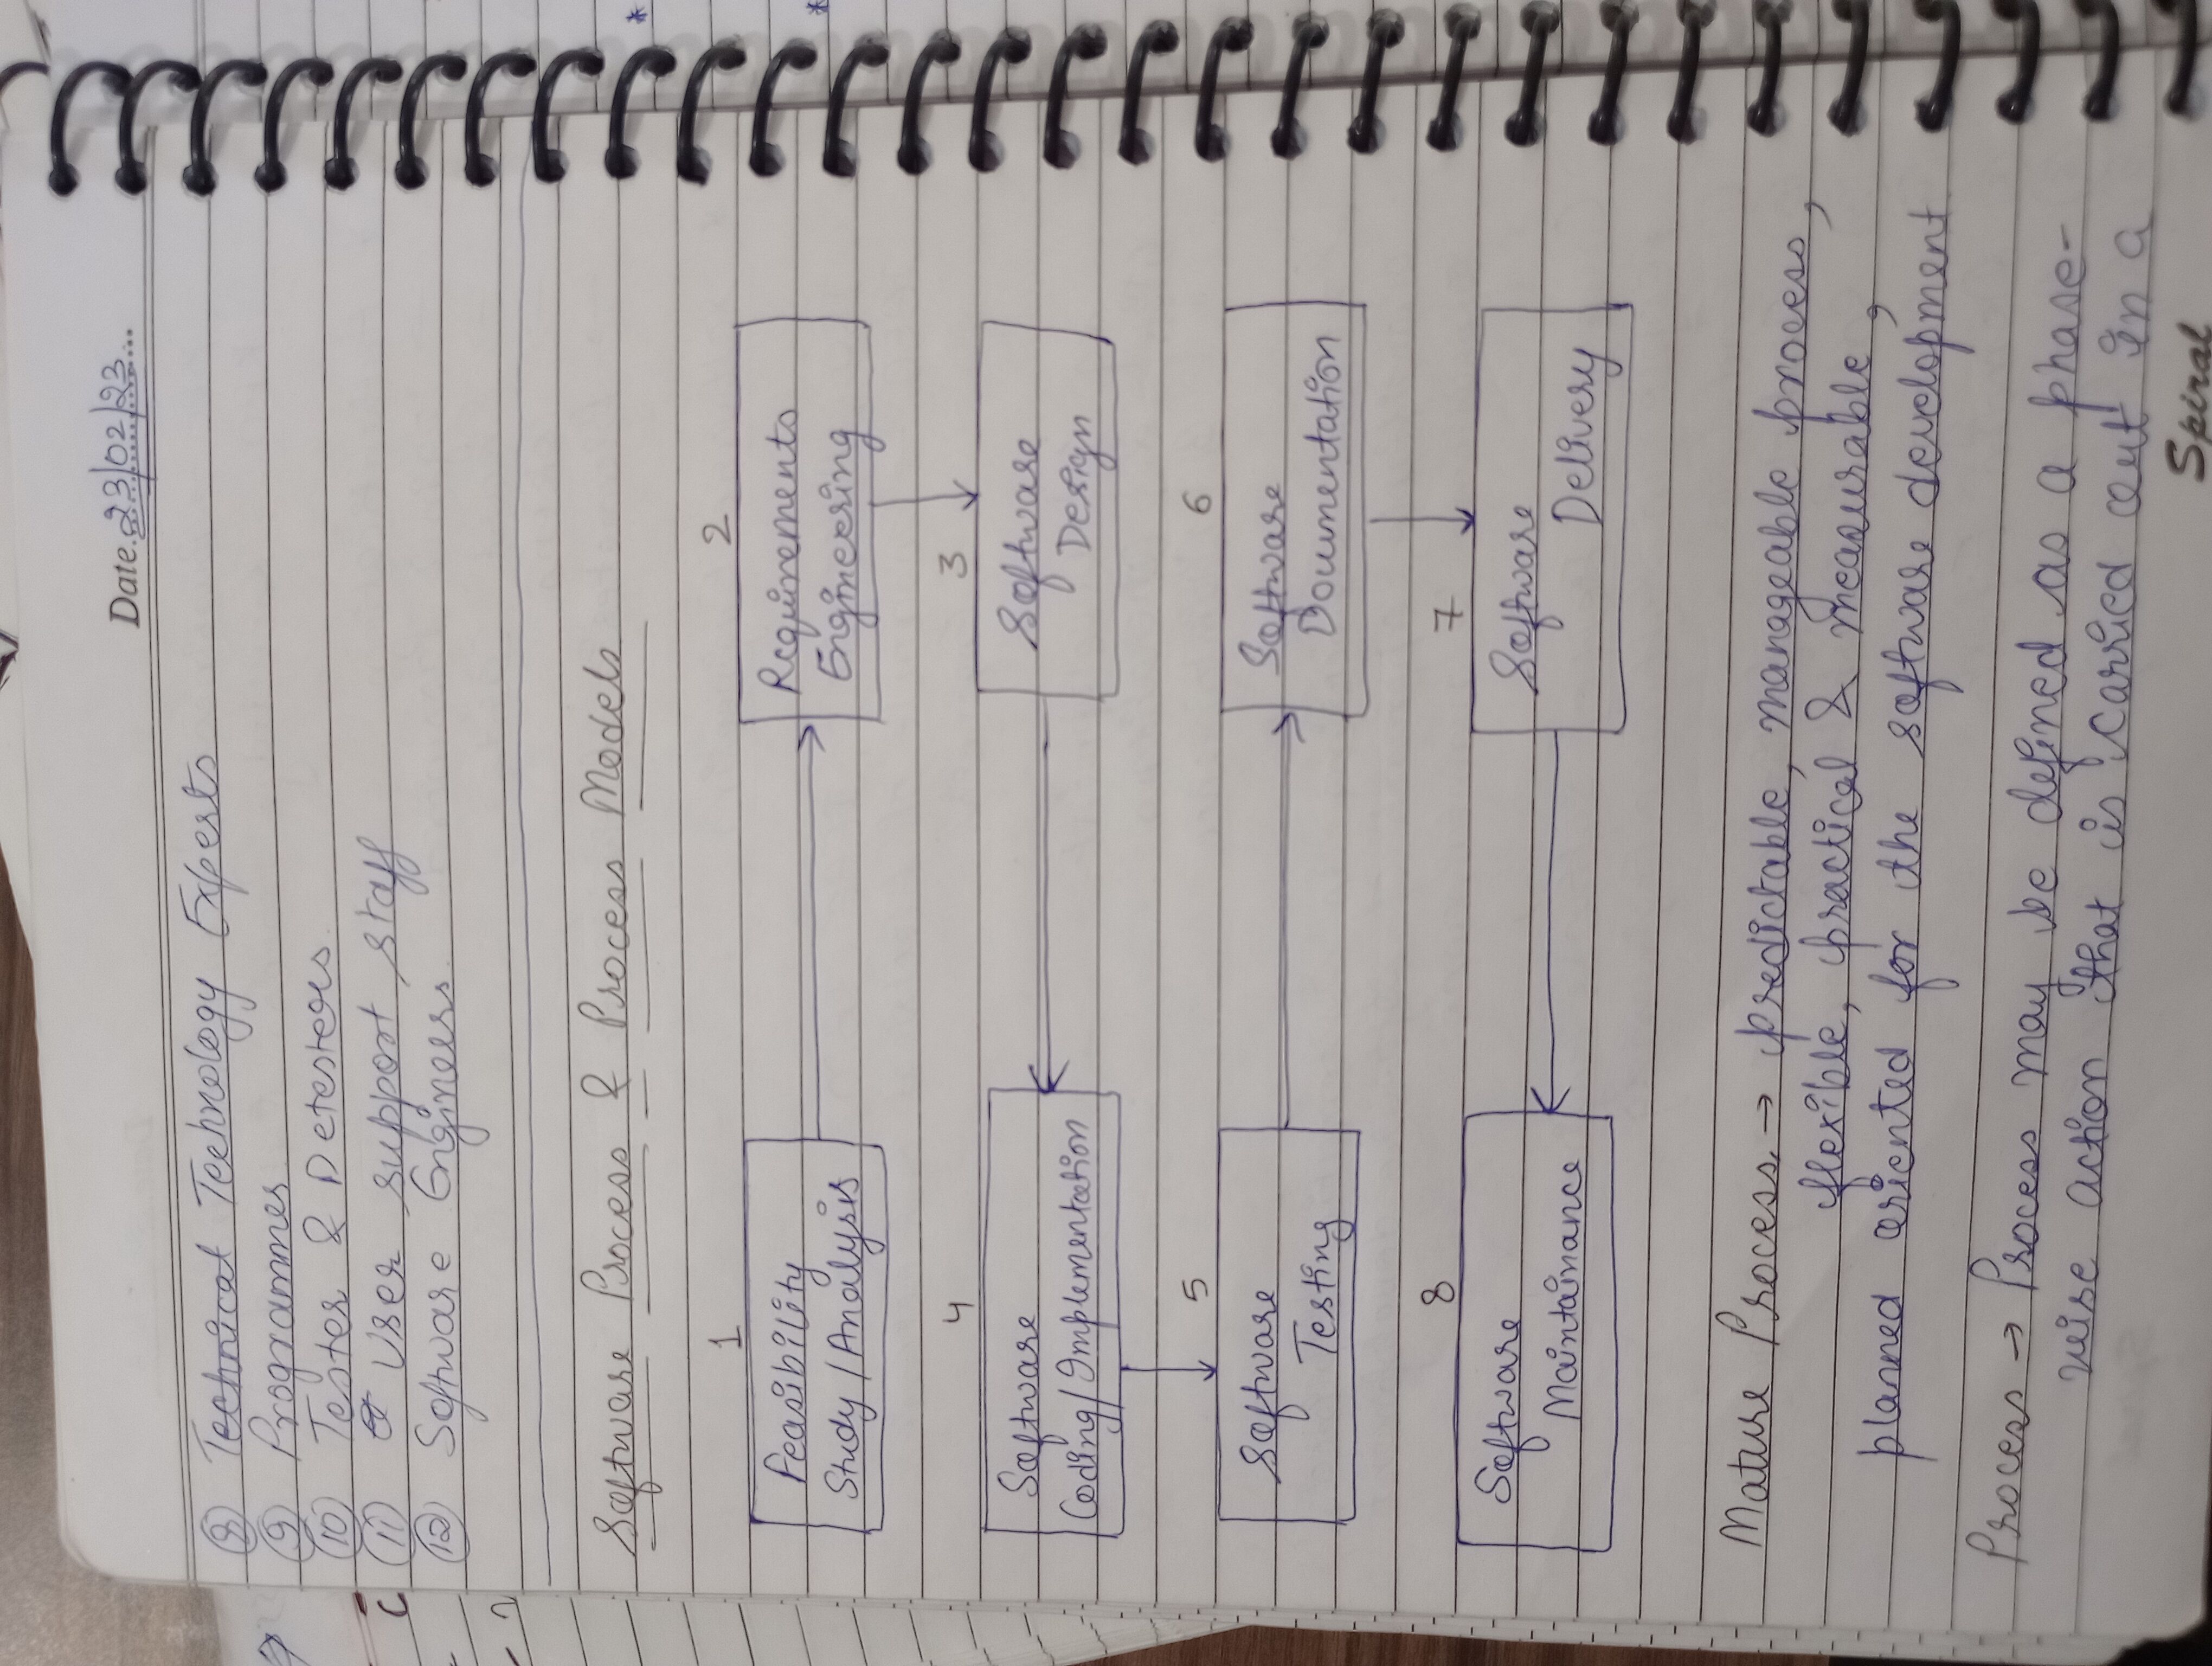 Date 23/02/23
⑧ Technical Technology Experts
⑨ Programmer
⑩ Tester & Detesters
⑪ User support staff
⑫ Software Engineers.
Software Process & Process Models
1
2
Feasibility
Study/Analysis
Requirements
Engineering
4
3
Software
Coding/Implementation
Software
Design
5
6
Software
Testing
Software
Documentation
8
7
Software
Maintainance
Software
Delivery
Mature Process → predictable, manageable process,
flexible, practical & measurable,
planned oriented for the software development
Process → Process may be defined as a phase-
wise action that is carried out in a
Spiral